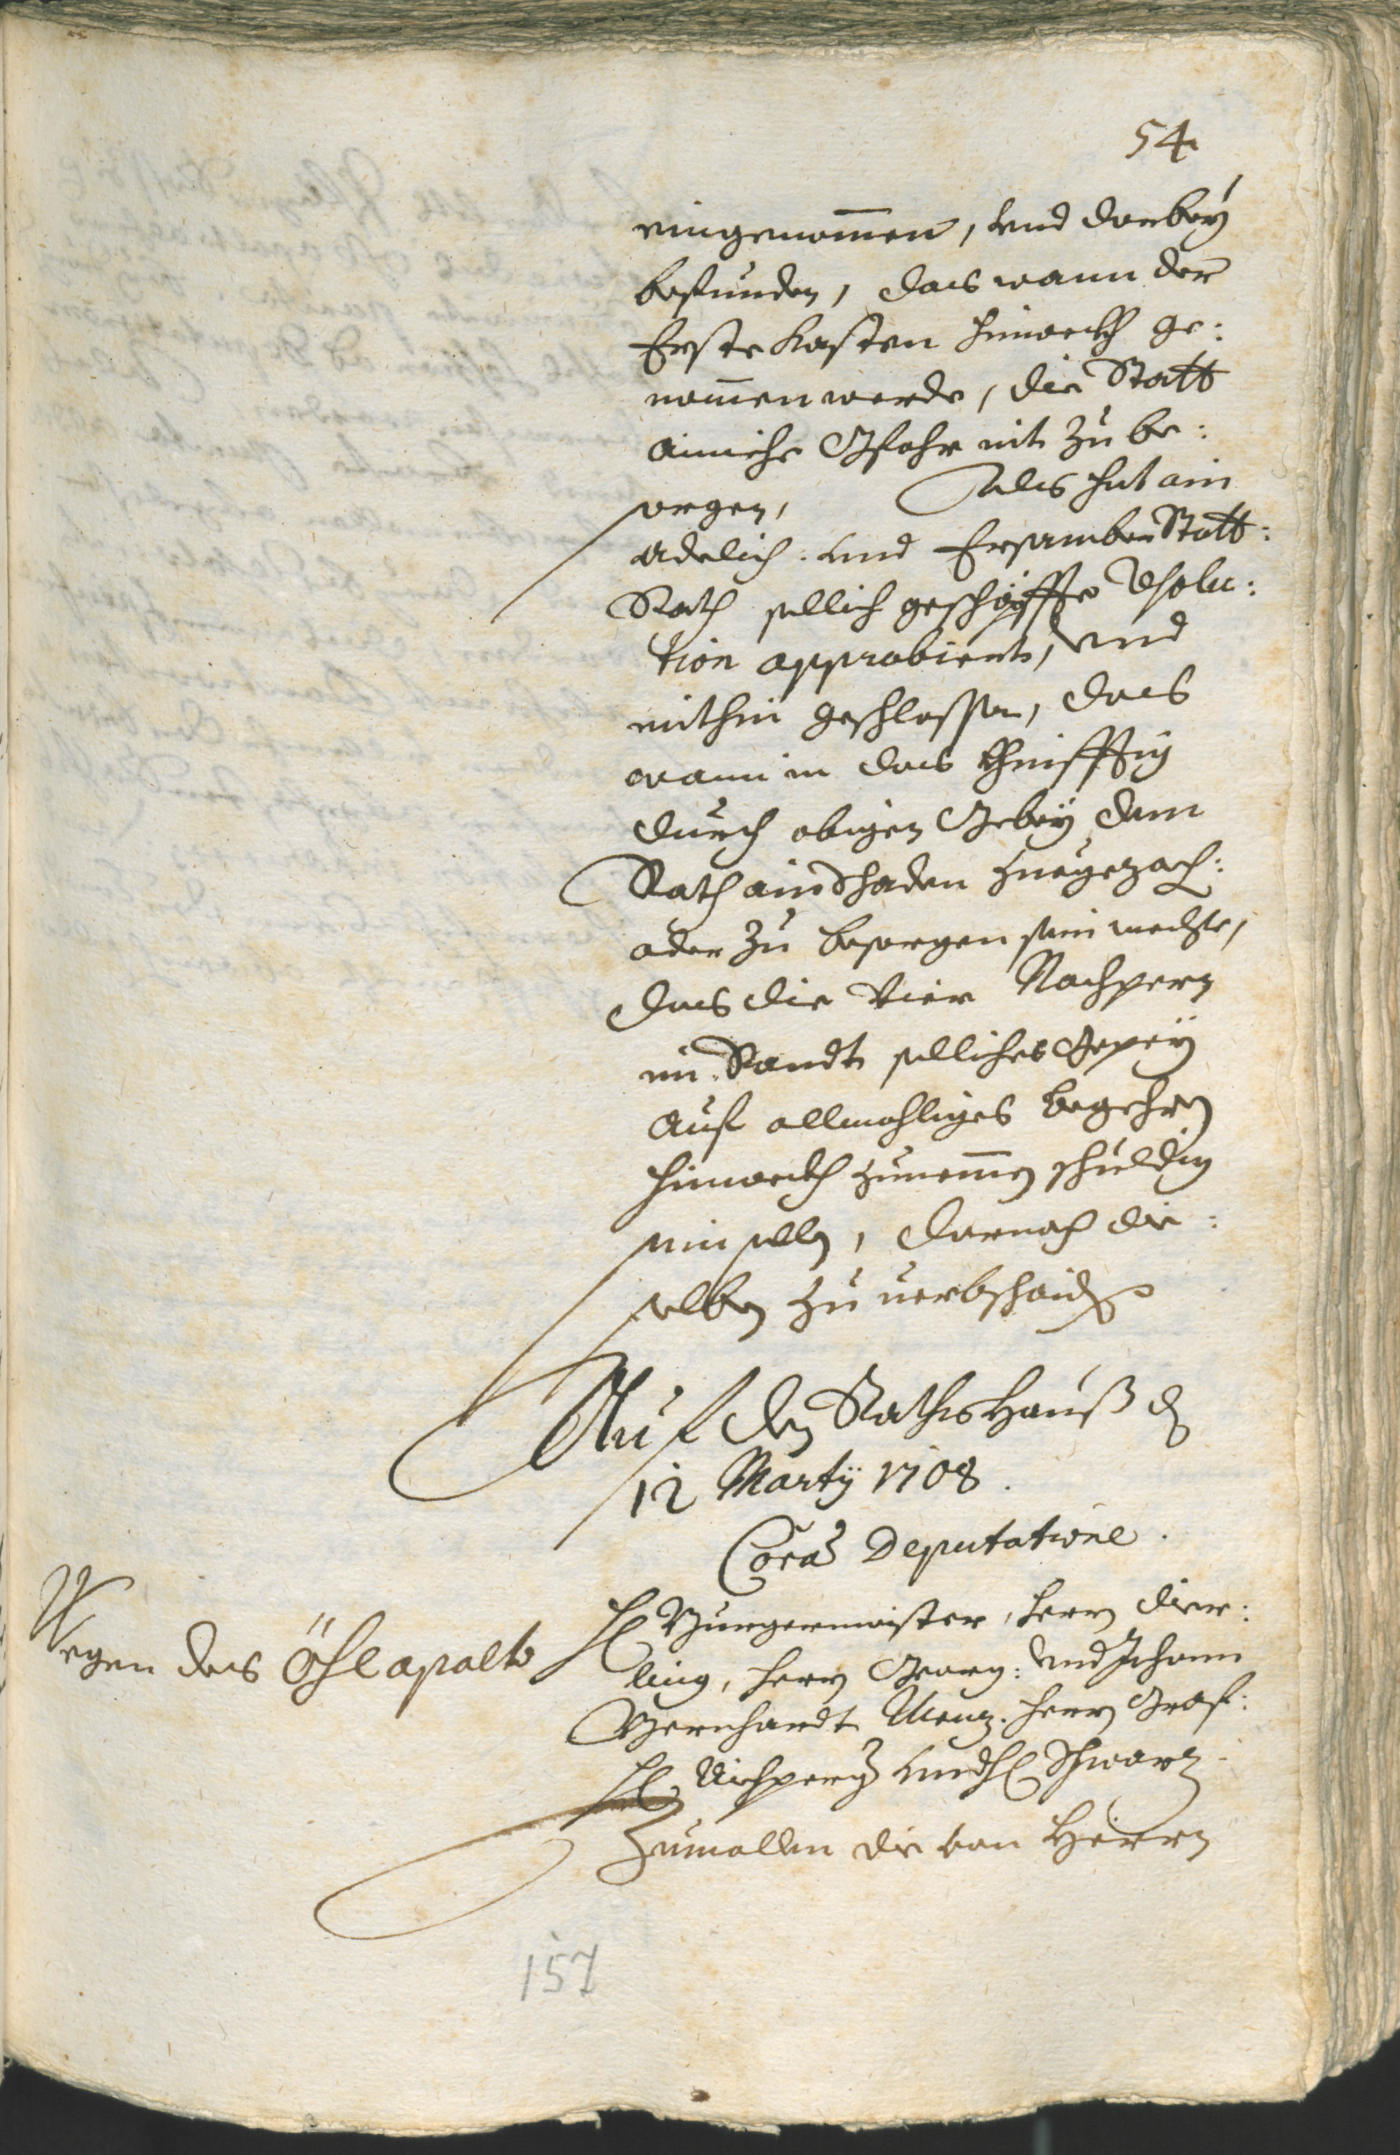 54
eingenomen, vnd darbey
befunden, das wann der
Erste Kasten hinwekh ge:
nomen werde, die Statt
ainiche Gfahr nit zu be:
sorgen, Alls hat ain
Adelich: vnd Ersamber Statt:
Rath sollich geschöpffte Resolu:
tion approbiert, vnd
mithin geschlossen, das
wann in das khinfftig
durch obigen Gebey dem
Rath ain Schaden
oder zu besorgen sein mechte,
das die vier Nachpern
im Sandt solliches Gepey
auf allmahliges begehrn
hinwekh zunemen schuldig
sein sollen, darnach die:
selben zu verbschaiden
Auf den Rathshauß den
12 Marty 1708.
Cora Deputatione.
Wegen des Öhlapalto
H Burgermaister, Herrn Dier:
ling, Herrn Georg: vnd Johann
Bernhardt Menz. Herrn Graf:
H vnd H Schwarz.
Zumallen die von Herrn
157